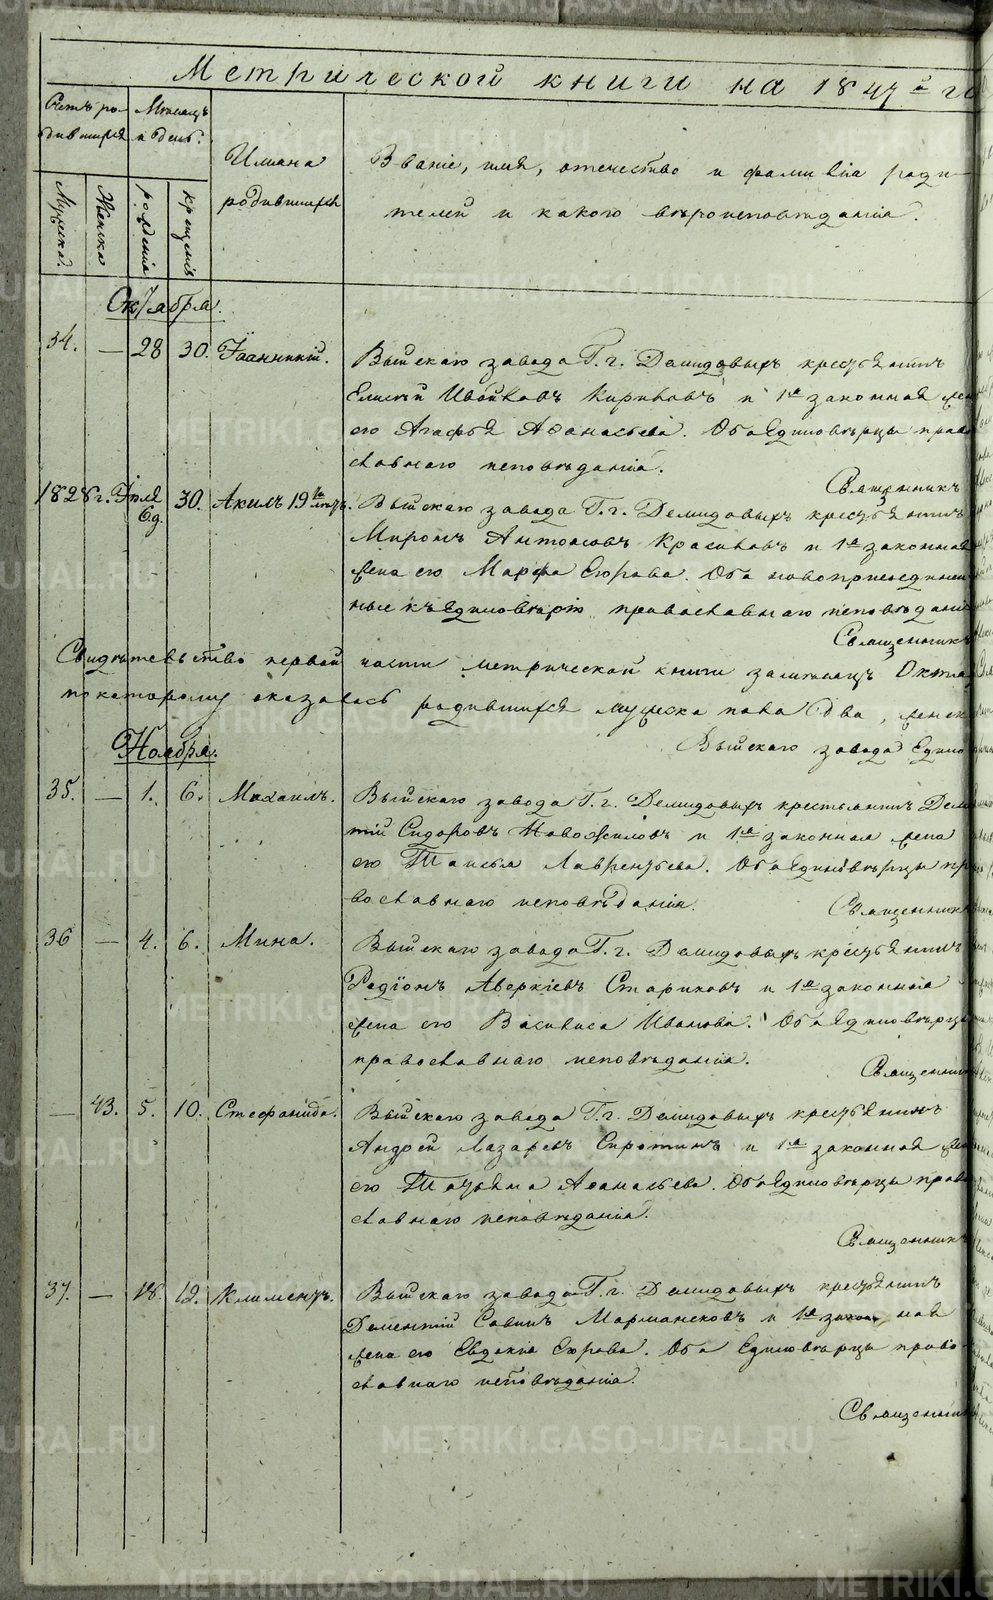 Метрической книги на 1847й го
Счетъ ро- Мѣсяцъ
дившихся и день.
Имяна
родившихся
Званіе, имя, отечество и фамилія роди-
телей и какого вѣроисповѣданія.
Мужеска.
Женска
рожденія
крещенія
Октября.
34. — 28 30. Іоанникій. Выйскаго завода Г. г. Демидовыхъ крестьянинъ
Елисей Ивойловъ и 1й законная жен
его Агафья Афанасьева. Оба единовѣрцы право
славнаго исповѣданія.
Священникъ
1828 г. Іюля 30. Акилъ 19ть лѣтъ. Выйскаго завода Г. г. Демидовыхъ крестьянинъ
Миронъ Антоновъ Красиловъ и 1й законная
жена его Марфа Егорова. Оба новоприсоединен
ные къ единовѣрію православнаго исповѣданія
Священникъ
Свидѣтельство первой части метрической книги за мѣсяцъ Октяб
по которому оказалось родившихся мужеска пола два, женск
Выйскаго завода Едино
Ноября.
35. — 1. 6. Михаилъ. Выйскаго завода Г. г. Демидовыхъ крестьянинъ Демен
тій Сидоровъ Новожиловъ и 1й законная жена
его Таисья Лаврентьева. Оба единовѣрцы пра
вославнаго исповѣданія.
Священникъ
36 — 4. 6. Мина. Выйскаго завода Г. г. Демидовыхъ крестьянинъ
Радіонъ Аверкіевъ Стариковъ и 1й законная
жена его Василиса Иванова. Оба единовѣрцы
православнаго исповѣданія.
Священникъ
— 43. 5. 10. Стефанида. Выйскаго завода Г. г. Демидовыхъ крестьянинъ
Андрей Лазаревъ Сиротинъ и 1й законная жен
его Татьяна Афанасьева. Оба единовѣрцы право
славнаго исповѣданія.
Священникъ
37. — 18. 19. Климентъ. Выйскаго завода Г. г. Демидовыхъ крестьянинъ
Дементій Савинъ и 1й законная
жена его Евдокія Егорова. Оба Единовѣрцы право-
славнаго исповѣданія.
Священник
METRIKI.GASO-URAL.RU